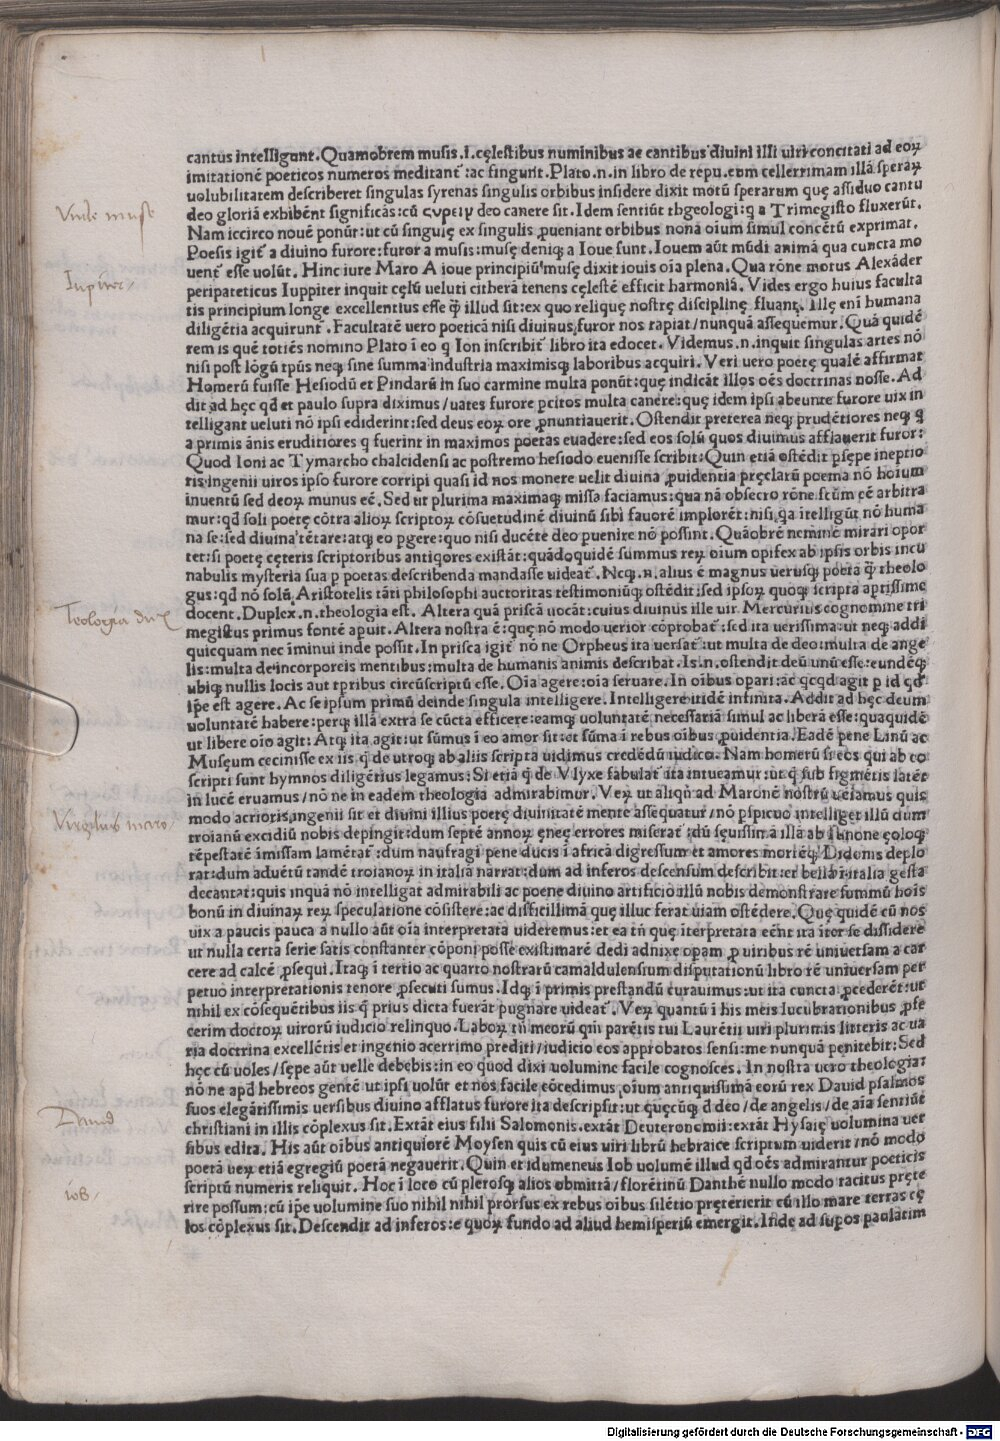 cantus intelligunt. Quamobrem musis .i. cęlestibus numinibus ac cantibus diuini illi uiri concitati ad eoꝝ
imitationē poeticos numeros meditant᷑ :ac fingunt. Plato .n. in libro de repu. cum cellerrimam illā speraꝝ
uolubilitatem describeret singulas syrenas singulis orbibus insidere dixit motū sperarum quę assiduo cantu
deo gloriā exhibēnt significās:cū ϲυρειν deo canere sit. Idem sentiūt thgeologi:q a Trimegisto fluxerūt.
Nam iccirco nouē ponūt:ut cū singulę ex singulis ꝓueniant orbibus nona oīum simul concētū exprimat.
Poesis igit᷑ a diuino furore:furor a musis:musę deniqꝫ a Ioue sunt. Iouem aūt mūdi animā qua cuncta mo
uent᷑ esse uolūt. Hinc iure Maro A ioue principiū musę dixit iouis oīa plena. Qua rōne motus Alexāder
peripateticus Iuppiter inquit cęlū ueluti citherā tenens cęlestē efficit harmoniā. Vides ergo huius faculta
tis principium longe excellentius esse q̄ illud sit:ex quo reliquę nostrę disciplinę fluant. Illę enī humana
diligētia acquirunt᷑. Facultatē uero poeticā nisi diuinus furor nos rapiat/nunquā assequemur. Quā quidē
rem is quē totiēs nomino Plato ī eo q Ion inscribit᷑ libro ita edocet. Videmus .n. inquit singulas artes nō
nisi post lōgū tp̄us neqꝫ sine summa industria maximisqꝫ laboribus acquiri. Veri uero poetę qualē affirmat
Homerū fuisse Hesiodū et Pindarū in suo carmine multa ponūt:quę indicāt illos oēs doctrinas nosse. Ad
dit ad hęc qd̄ et paulo supra diximus/uates furore ꝑcitos multa canere:quę idem ipsi abeunte furore uix in
telligant ueluti nō ipsi ediderint:sed deus eoꝝ ore ꝓnuntiauerit. Ostendit preterea neqꝫ prudētiores neqꝫ q
a primis ānis eruditiores q fuerint in maximos poetas euadere:sed eos solū quos diuinus afflauerit furor:
Quod Ioni ac Tymarcho chalcidensi ac postremo hesiodo euenisse scribit:Quin etiā ostēdit ꝑsępe ineptio
ris ingenii uiros ipso furore corripi quasi id nos monere uelit diuina ꝓuidentia pręclarū poema nō hoium
inuentū sed deoꝝ munus eē. Sed ut plurima maximaqꝫ missa faciamus:qua nā obsecro rōne fctūm eē arbitra
mur:qd̄ soli poetę cōtra alioꝝ scriptoꝝ cōsuetudinē diuinū sibi fauorē implorēt:nisi qa ītelligūt nō huma
na se:sed diuina tētare:atqꝫ eo ꝑgere:quo nisi ducēte deo puenire nō possint. Quāobrē neminē mirari opor
tet:si poetę cęteris scriptoribus antiqores existāt:quādoquidē summus reꝝ oium opifex ab ipsis orbis incu
nabulis mysteria sua p poetas describenda mandasse uideat᷑. Neqꝫ .n. alius ē magnus uerusqꝫ poeta q̄ theolo
gus:qd̄ nō solū Aristotelis tāti philosophi auctoritas testimoniūqꝫ ostēdit:sed ipsoꝝ quoqꝫ scripta aptissime
docent. Duplex .n. theologia est. Altera quā priscā uocāt:cuius diuinus ille uir Mercurius cognomine tri
megistus primus fontē apuit. Altera nostra ē:quę nō modo uerior cōprobat᷑:sed ita uerissima:ut neqꝫ addi
quicquam nec iminui inde possit. In prisca igit᷑ nō ne Orpheus ita uersat᷑:ut multa de deo:multa de ange
lis:multa de incorporeis mentibus:multa de humanis animis describat. Is .n. ostendit deū unū esse:eundēqꝫ
ubiqꝫ nullis locis aut tp̄ribus circūscriptū esse. Oīa agere:oīa seruare. In oībus opari:ac qcqd agit p id qd̄
ip̄e est agere. Ac se ipsum primū deinde singula intelligere. Intelligere itidē infinita. Addit ad hęc deum
uoluntatē habere:perqꝫ illā extra se cūcta efficere:eamqꝫ uoluntatē necessariā simul ac liberā esse:quaquidē
ut libere oīo agit:Atqꝫ ita agit:ut sūmus ī eo amor sit:et sūma ī rebus oībus ꝓuidentia. Eadē pene Linū ac
Museum cecinisse ex iis q̄ de utroqꝫ ab aliis scripta uidimus credēdū iudico. Nam homerū si eos qui ab eo
scripti sunt hymnos diligētius legamus:Si etiā q̄ de Vlyxe fabulat᷑ ita intueamur:ut q̄ sub figmētis latēt
in lucē eruamus/nō ne in eadem theologia admirabimur. Veꝝ ut aliqn̄ ad Maronē nostrū ueiamus quis
modo acrioris ingenii sit et diuini illius poetę diuinitatē mente assequatur/nō pspicuo intelliget illū dum
troianū excidiū nobis depingit:dum septē annoꝝ ęneę errores miserat᷑ :dū sęuissimā illā ab Iunone ęoloqꝫ
tēpestatē imissam lamētat᷑ :dum naufragi pene ducis ī africā digressum et amores mortēqꝫ Didonis deplo
rat:dum aduētū tandē troianoꝝ in italiā narrat:dum ad inferos descensum describit:et bella ī italia gesta
decantat:quis inquā nō intelligat admirabili ac poene diuino artificio illū nobis demonstrare summū hoīs
bonū in diuinaꝝ reꝝ speculatione cōsistere:ac difficillimā quę illuc ferat uiam ostēdere. Quę quidē cū nos
uix a paucis pauca a nullo aūt oīa interpretata uideremus:et ea tn̄ quę īterpretata eēnt ita īter se dissidere
ut nulla certa serie satis constanter cōponi posse existimarē dedi adnixe opam ꝓ uiribus rē uniuersam a car
cere ad calcē ꝓsequi. Itaqꝫ ī tertio ac quarto nostrarū camaldulensium disputationū libro rē uniuersam per
petuo interpretationis tenore ꝓsecuti sumus. Idqꝫ ī primis prestandū curauimus:ut ita cuncta ꝓcederēt:ut
nihil ex cōsequētibus iis q̄ prius dicta fuerāt pugnare uideat᷑. Veꝝ quantū ī his meis lucubrationibus ꝓfe
cerim doctoꝝ uirorū iudicio relinquo. Laboꝝ tn̄ meorū qm̄ parētis tui Laurētii uiri plurimis litteris ac ua
ria doctrina excellētis et ingenio acerrimo prediti/iudicio eos approbatos sensi:me nunquā penitebit:Sed
hęc cū uoles/sępe aūt uelle debebis:in eo quod dixi uolumine facile cognosces. In nostra uero theologia:
nō ne apd̄ hebreos gentē ut ipsi uolūt et nos facile cōcedimus oīum antiquissimā eorū rex Dauid psalmos
suos elegātissimis uersibus diuino afflatus furore ita descripsit:ut quęcūqꝫ d̄ deo/de angelis/de aīa sentiūt
christiani in illis cōplexus sit. Extāt eius filii Salomonis. extāt Deuteronomii:extāt Hysaię uolumina uer
sibus edita. His aūt oībus antiquiorē Moysen quis cū eius uiri librū hebraice scriptum uiderit/nō modo
poetā ueꝝ etiā egregiū poetā negauerit. Quin et idumeneus Iob uolumē illud qd̄ oēs admirantur poeticis
scriptū numeris reliquit. Hoc ī loco cū plerosqꝫ alios obmittā/florētinū Danthē nullo modo tacitus pręte
rire possum:cū ip̄e uolumine suo nihil nihil prorsus ex rebus oībus silētio pręterierit cū illo mare terras cę
los cōplexus sit. Descendit ad inferos:e quoꝝ fundo ad aliud hemisperiū emergit. Inde ad supos paulatim
Vnde muse
Iupiter
Teologia du
Virgilius maro
Dauid
iob
Digitalisierung gefördert durch die Deutsche Forschungsgemeinschaft - DFG